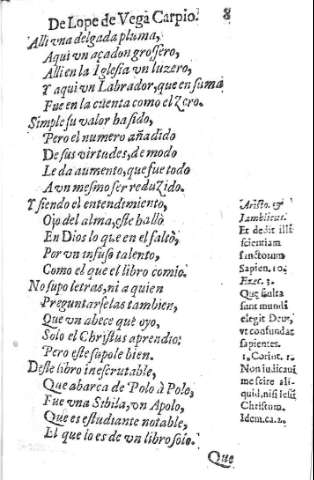 De Lope de Vega Carpio. 8
Alli vna delgada pluma,
Aqui vn açadon grossero,
Alli en la Iglesia vn luzero,
Y aqui vn Labrador, que en suma
Fue en la cuenta como el Zero.
Simple su valor ha sido,
Pero el numero añadido
De sus virtudes, de modo
Le da aumento, que fue todo
A vn mesmo ser reduzido.
Y siendo el entendimiento,
Ojo del alma, este hallò
En Dios lo que en el faltò,
Por vn infuso talento,
Como el que el libro comio.
No supo letras, ni a quien
Preguntarselas tambien,
Que vn abece que oyo,
Solo el Christus aprendio:
Pero este supole bien.
Deste libro inescrutable,
Que abarca de Polo à Polo,
Fue vna Sibila, vn Apolo,
Que es estudiante notable,
El que lo es de vn libro solo.
Aristo. &
Iamblicus.
Et dedit illi
scientiam
sanctorum
Sapien. 10.
Exec. 3.
Quæ stulta
sunt mundi
elegit Deus,
vt confundat
sapientes.
1. Corint. 1.
Non iudicaui
me scire ali-
quid, nisi Iesū
Christum.
Idem. ca. 2.
Que